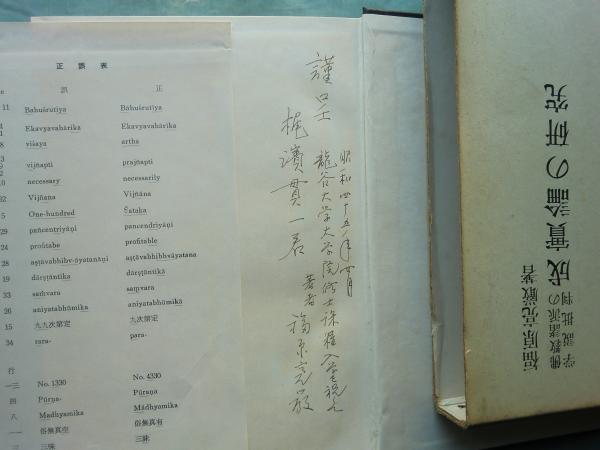 正誤表
誤 正
11 Bahuśrutiya Bahuśrutīya
Ekavyavahārika Ekavyavahārika
8 viśaya artha
vijñapti prajñapti
10 necessary necessarily
32 Vijñana Vijñāna
5 One-hundred Śataka
29 pañcentriyāṇi pancendriyāṇi
24 profitabe profitable
28 aṣṭāvabhibv-āyatanāni aṣṭāvabhibhvāyatana
19 dārṣṭāntika dārṣṭāntika
33 saṃvara saṃvara
26 aniyatabhūmika aniyatabhūmikā
15 九九次第定 九次第定
34 rara- para-
行
三 No. 1330 No. 4330
四 Pūrṇa- Pūraṇa
八 Madhyamika Mādhyamika
俗無真空 俗無真有
三昧 三昧
謹呈
昭和四十五年四月
龍谷大学大学院修士課程入学祝ひ
梶濱貫一君
著者 福原亮厳
福原亮厳著
佛教諸派の学説批判
成實論の研究